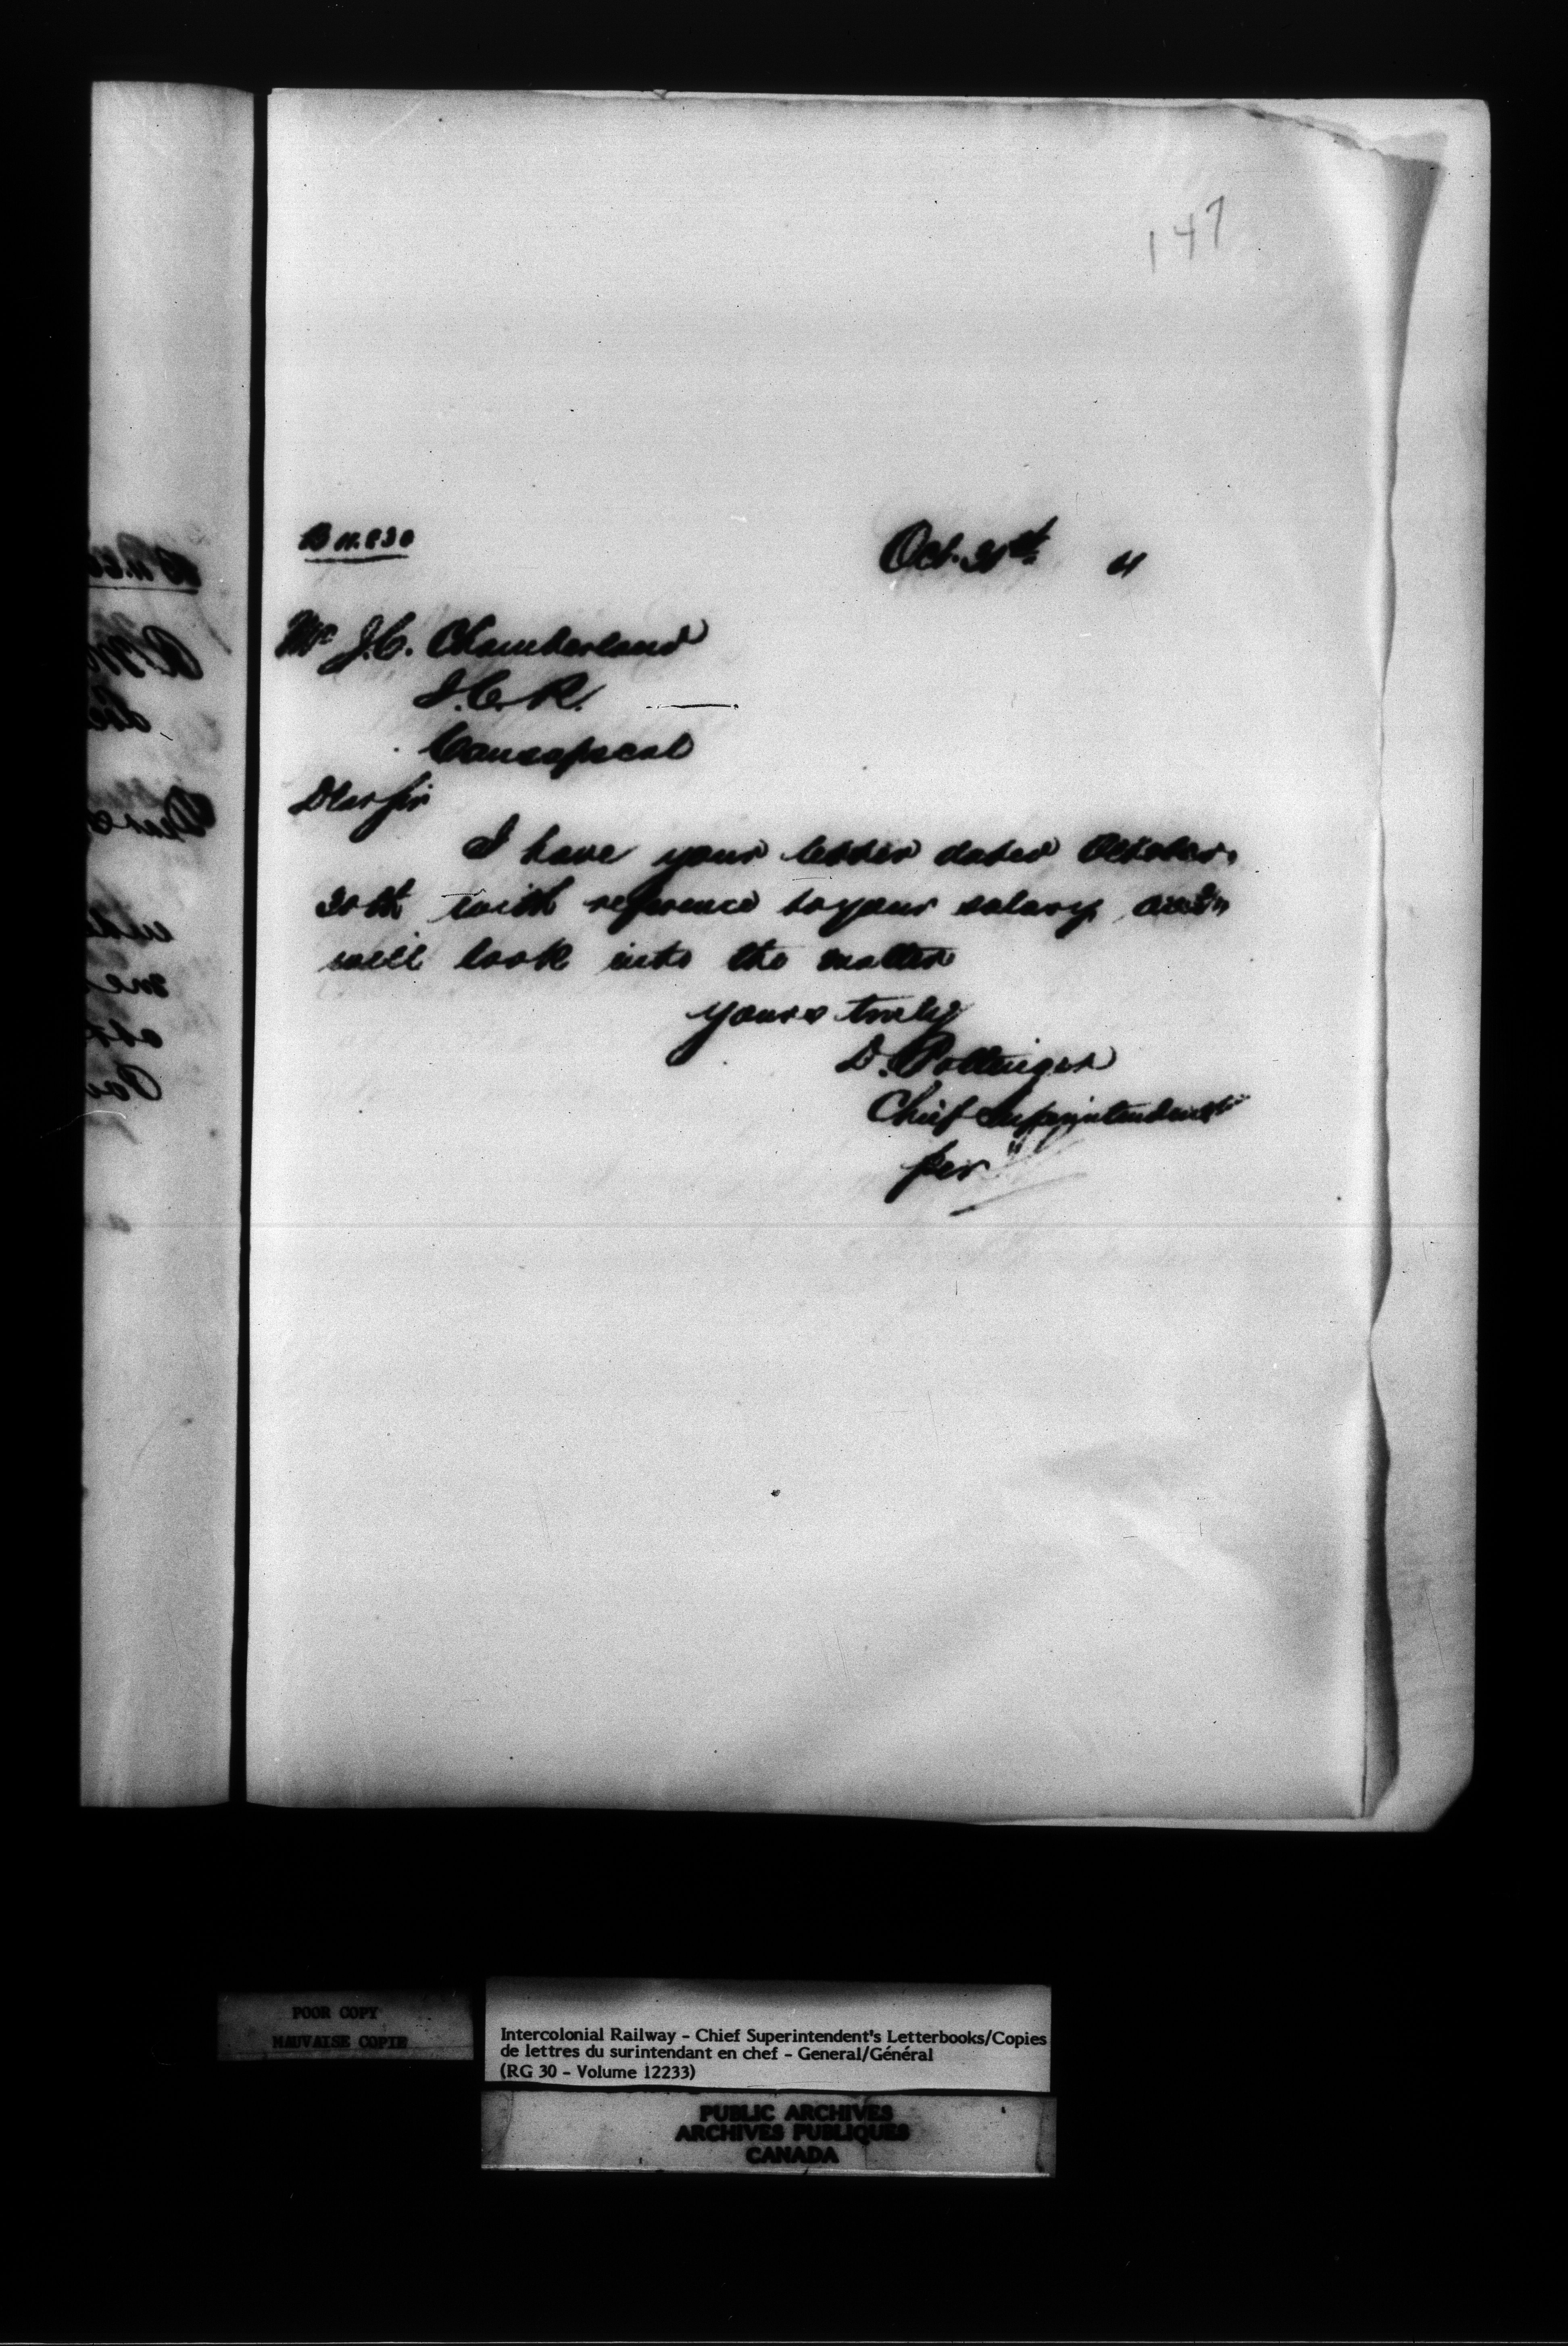 147
Oct. 31st
Mr J.C. Chamberland
I.C.R.
Causapscal
Dear Sir
I have your letter dated October
30th with reference to your salary, and
will look into the matter
Yours truly
D. Pottinger
Chief Superintendent
per
POOR COPY
MAUVAISE COPIE
Intercolonial Railway - Chief Superintendent's Letterbooks/Copies
de lettres du surintendant en chef - General/Général
(RG 30 - Volume 12233)
PUBLIC ARCHIVES
ARCHIVES PUBLIQUES
CANADA